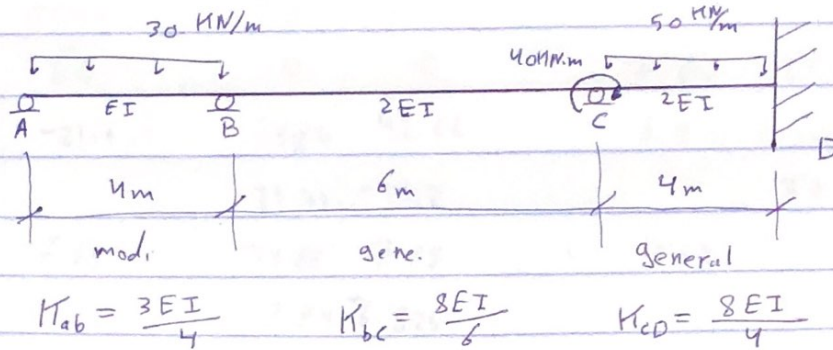 30 KN/m
50 KN/m
40KN.m
EI
2EI
2EI
A
B
C
D
4m
6m
4m
mod.
gene.
general
Kab = 3EI/4
Kbc = 8EI/6
KCD = 8EI/4